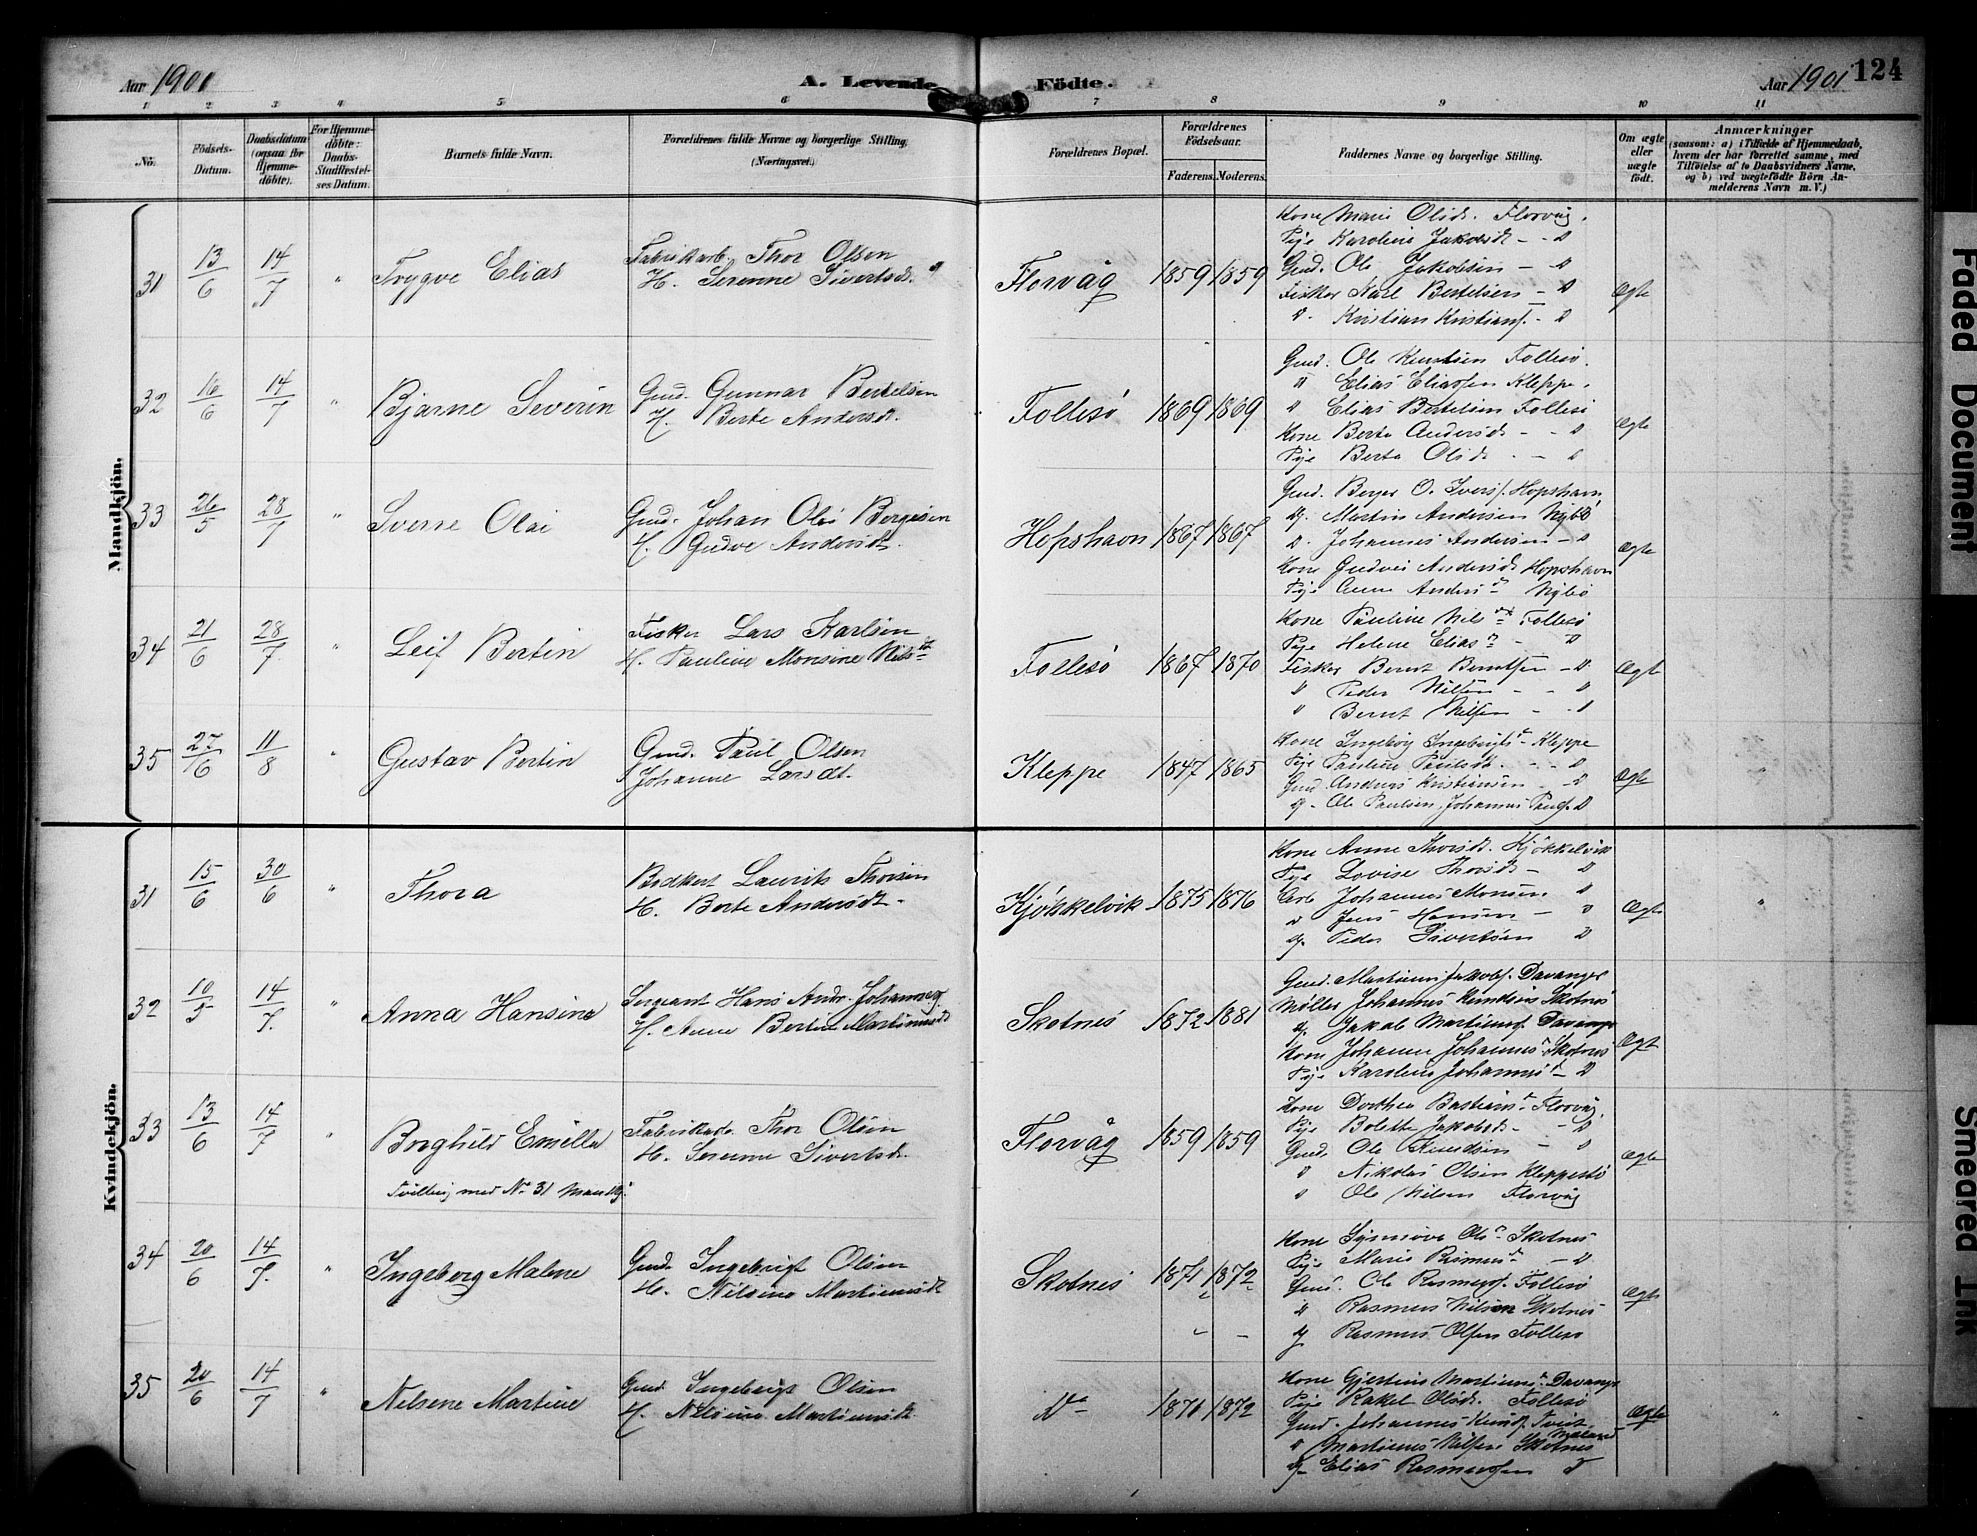 Aar 1901
A. Levende Födte.
Aar 1901 124
1 2 3 4 5 6 7 8 9 10 11
No.
Födsels-Datum.
Daabsdatum (ogsaa for Hjemmedöbte).
For Hjemmedöbte: Daabs-Stadfæstelses Datum.
Barnets fulde Navn.
Forældrenes fulde Navne og borgerlige Stilling. (Næringsvei.)
Forældrenes Bopæl.
Forældrenes Födselsaar.
Faderens. Moderens.
Faddernes Navne og borgerlige Stilling.
Om ægte eller uægte födt.
Anmærkninger
(saasom: a) i Tilfælde af Hjemmedaab, hvem der har forrettet samme, med Tilföielse af to Daabsvidners Navne, og b) ved uægtefödte Börn Anmelderens Navn m. V.)
Mandkjön.
31 13/6 14/7 " Trygve Elias
Fabrikarb. Thor Olsen
H. Serenne Sivertsd.
Florvåg 1859 1859
Kone Marie Olsd. Florvåg.
Pige Karoline Jakobsd - - D
Gmd. Ole Jakobsen - D
Fisker Karl Bertelsen - D
D. Kristian Kristians. - D
Ægte
32 16/6 14/7 " Bjarne Severin
Gmd. Gunnar Bertelsen
H. Berte Andersdt.
Follesø 1869 1869
Gmd. Ole Knutsen Follesø.
D Elias Eliassen Kleppe.
D Elias Bertelsen Follesø
Kone Berta Andersd - - D
Pige Berta Olsd. - D
Ægte
33 26/5 28/7 " Sverre Olai
Gmd. Johan Olai Bergesen
H. Gudve Andersdt.
Hopshavn 1867 1867
Gmd. Berger O. Ivers. Hopshavn
D. Martin Andersen Nybø
D. Johannes Andersen - D
Kone Gudvei Andersd. Hopshavn
Pige Anne Anders d Nybø
Ægte
34 21/6 28/7 " Leif Bertin
Fisker Lars Karlsen
H. Pauline Monsine Nils dt
Follesø 1867 1870
Kone Pauline Nils dt Follesø
Pige Helene Elias d - D
Fisker Bernt Berntsen - D
D Peder Nilsen - - D
" Bernt Nilsen - - D
Ægte
35 27/6 11/8 " Gustav Bertin
Gmd. Paul Olsen
Johanne Larsdt.
Kleppe 1847 1865
Kone Ingeborg Ingebrigts d - Kleppe
Pige Pauline Paulsd. - - D
Gmd. Andreas Kristiansen - D
D. Ole Paulsen, Johannes Pauls. D
Ægte
Kvindekjön.
31 15/6 30/6 " Thora
Bødker Laurits Thorsen
H. Berte Andersdt.
Kjøkkelvik 1875 1876
Kone Anne Thorsdt. Kjøkkelvik
Pige Lovise Thorsdt - D
Arb Johannes Monsen D
D Jens Hansen - D
D. Peder Sivertsen D
Ægte "
32 10/5 14/7 " Anna Hansine
Sergeant Hans Andr. Johannes.
H. Anne Bertine Martinusdt
Skotnes 1872 1881
Gmd. Martinus Jakobs. Davanger
Møller Johannes Knudsen Skotnes
D. Jakob Martinus. Davanger
Kone Johanne Johannes d. Skotnes
Pige Karoline Johannesd - D
Ægt
33 13/6 14/7 " Borghild Emilla
Tvilling med No 31 Mandkj.
Fabrikarb. Thor Olsen
H. Serenne Sivertsdt.
Florvåg 1859 1859
Kone Dorthea Bastians d. Florvåg.
Pige Bolette Jakobsd. - D
Gmd. Ole Knudsen - D
D Nikolai Olsen Kleppestø
D Ole Nilsen Florvåg
Ægte
34 20/6 14/7 " Ingeborg Malene
Gmd. Ingebrigt Olsen
H. Nilsine Martinusdt
Skotnes 1871 1872
Kone Synnøve Ols d Skotnes
Pige Marie Rasmus d - D
Gmd. Ole Rasmus. Follesø
D Rasmus Nilsen Skotnes
D Rasmus Olsen Follesø
Ægte
35 20/6 14/7 " Nilsene Martine
Gmd Ingebrigt Olsen
H. Nilsine Martinusdt.
Do 1871 1872
Kone Gjertine Martinus d. Davanger
Pige Rakel Olsd. Follesø
Gmd. Johannes Knud.
D Martinus Nilsen Skotnes
D Elias Rasmussen D
Ægte "
Faded Document
Smeared Ink